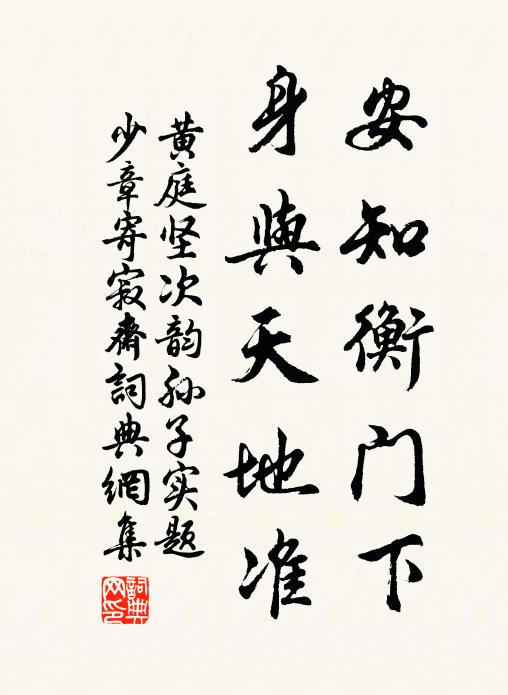 安知衡门下
身與天地准
黄庭坚次韵孙子实题
少章寄寂齋詞典網集
詞典
网印